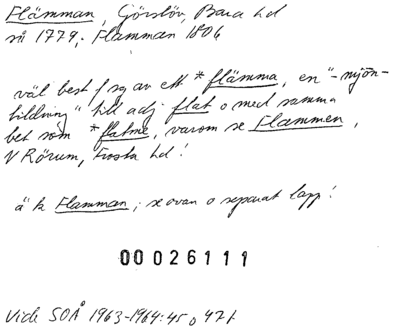 Flämman, Görslöv, Bara hd
så 1779; Flamman 1806
väl best f sg av ett *flämma, en "-mjōn-
bildning" till adj flat o med samma
bet som *flatme, varom se Flammen,
V Rörum, Frosta hd!
ä k Flamman; se ovan o separat lapp!
00026111
Vide SOÅ 1963-1964:45 o 47f.